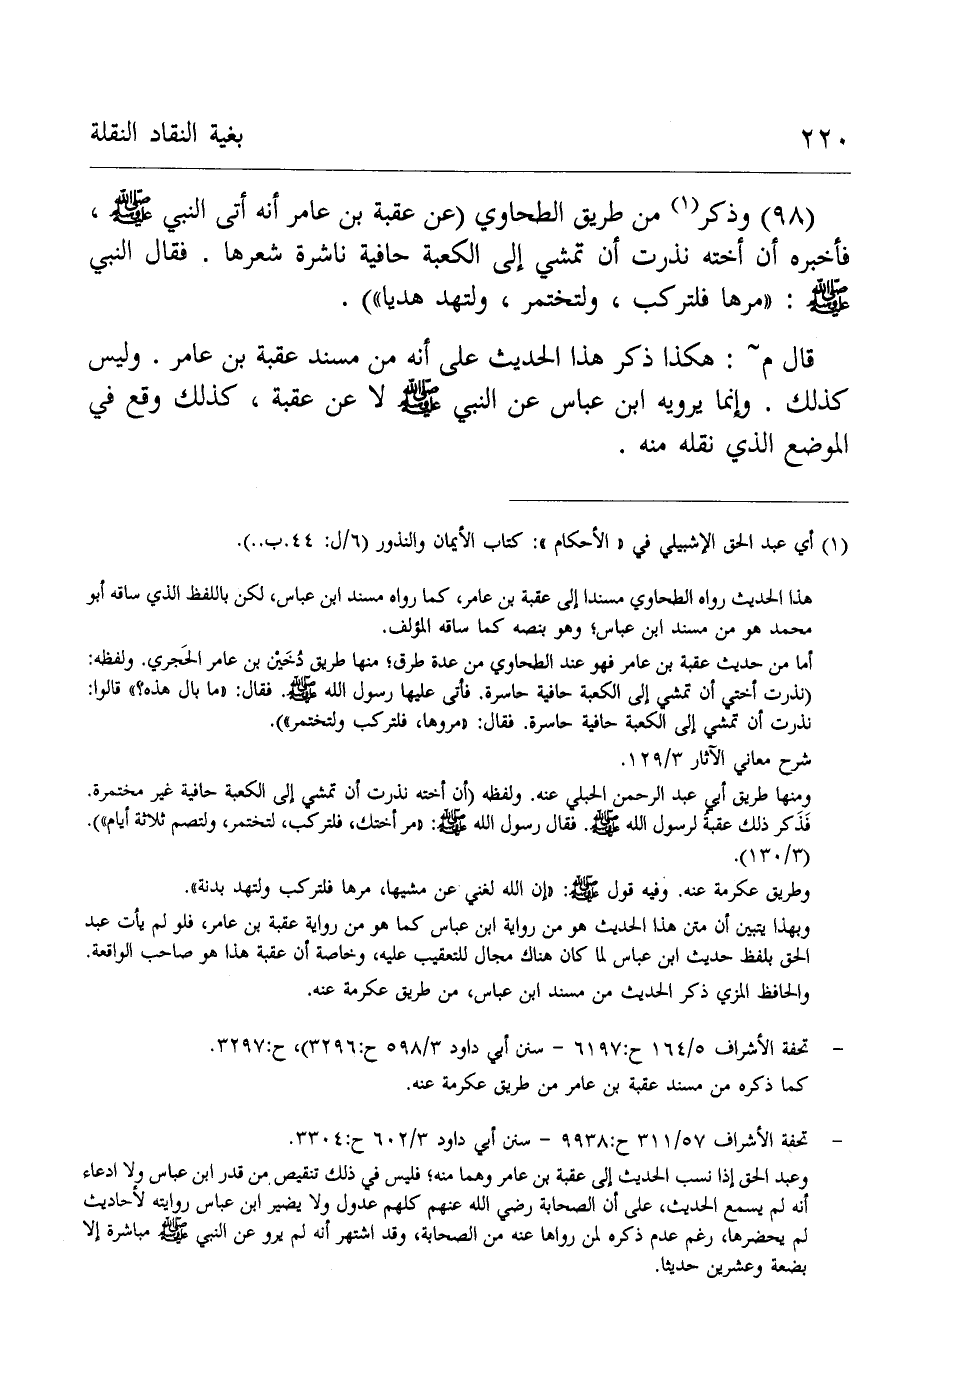 ٢٢٠
بغية النقاد النقلة
(٩٨) وذكر(١) من طريق الطحاوي (عن عقبة بن عامر أنه أتى النبي ﷺ ،
فأخبره أن أخته نذرت أن تمشي إلى الكعبة حافية ناشرة شعرها . فقال النبي
ﷺ : «مرها فلتركب ، ولتختمر ، ولتهد هديا») .
قال م~ : هكذا ذكر هذا الحديث على أنه من مسند عقبة بن عامر . وليس
كذلك . وإنما يرويه ابن عباس عن النبي ﷺ لا عن عقبة ، كذلك وقع في
الموضع الذي نقله منه .
(١) أي عبد الحق الإشبيلي في « الأحكام »: كتاب الأيمان والنذور (٦/ل: ٤٤.ب..).
هذا الحديث رواه الطحاوي مسندا إلى عقبة بن عامر، كما رواه مسند ابن عباس، لكن باللفظ الذي ساقه أبو
محمد هو من مسند ابن عباس؛ وهو بنصه كما ساقه المؤلف.
أما من حديث عقبة بن عامر فهو عند الطحاوي من عدة طرق؛ منها طريق دُخَيْن بن عامر الحَجري. ولفظه:
(نذرت أختي أن تمشي إلى الكعبة حافية حاسرة. فأتى عليها رسول الله ﷺ. فقال: «ما بال هذه؟» قالوا:
نذرت أن تمشي إلى الكعبة حافية حاسرة. فقال: «مروها، فلتركب ولتختمر»).
شرح معاني الآثار ١٢٩/٣.
ومنها طريق أبي عبد الرحمن الحبلي عنه. ولفظه (أن أخته نذرت أن تمشي إلى الكعبة حافية غير مختمرة.
فَذَكر ذلك عقبةُ لرسول الله ﷺ. فقال رسول الله ﷺ: «مر أختك، فلتركب، لتختمر، ولتصم ثلاثة أيام»).
(١٣٠/٣).
وطريق عكرمة عنه. وفيه قول ﷺ: «إن الله لغني عن مشيها، مرها فلتركب ولتهد بدنة».
وبهذا يتبين أن متن هذا الحديث هو من رواية ابن عباس كما هو من رواية عقبة بن عامر، فلو لم يأت عبد
الحق بلفظ حديث ابن عباس لما كان هناك مجال للتعقيب عليه، وخاصة أن عقبة هذا هو صاحب الواقعة.
والحافظ المزي ذكر الحديث من مسند ابن عباس، من طريق عكرمة عنه.
- تحفة الأشراف ١٦٤/٥ ح:٦١٩٧ - سنن أبي داود ٥٩٨/٣ ح:٣٢٩٦)، ح:٣٢٩٧.
كما ذكره من مسند عقبة بن عامر من طريق عكرمة عنه.
- تحفة الأشراف ٣١١/٥٧ ح:٩٩٣٨ - سنن أبي داود ٦٠٢/٣ ح:٣٣٠٤.
وعبد الحق إذا نسب الحديث إلى عقبة بن عامر وهما منه؛ فليس في ذلك تنقيص من قدر ابن عباس ولا ادعاء
أنه لم يسمع الحديث، على أن الصحابة رضي الله عنهم كلهم عدول ولا يضير ابن عباس روايته لأحاديث
لم يحضرها، رغم عدم ذكره لمن رواها عنه من الصحابة، وقد اشتهر أنه لم يرو عن النبي ﷺ مباشرة إلا
بضعة وعشرين حديثا.